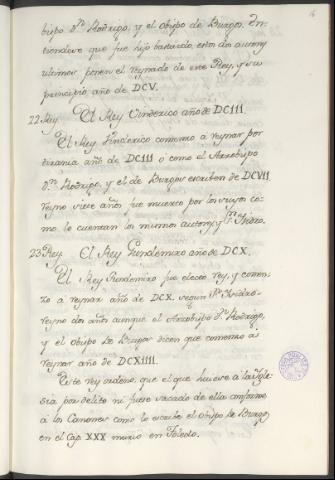 bispo Dn Rodrigo, y el Obispo de Burgos. En-
tiendese que fue hijo bastardo, estos dos autores
ultimos ponen el reynado de este Rey, y su
principio año de DCV.
22 Rey. El Rey Vinderico año de DCIII.
El Rey Vinderico comenzo a reynar por
tirania año de DCIII o como el Arzobispo
Dn Rodrigo, y el de Burgos escriben de DCVII
reyno siete años fue muerto por los suyos co-
mo lo cuentan los mismos autores, y Sn Isidro.
23 Rey. El Rey Gundemiro año de DCX.
El Rey Gundemiro fue electo rey, y comen-
zo a reynar año de DCX. segun Sn Ysidro
reyno dos años aunque el Arzobispo Dn Rodrigo,
y el Obispo de Burgos dicen que comenzo a
reynar año de DCXIIII.
Este rey ordeno que el que huiese a la Ygle-
sia por delito ni fuese sacado de ella conforme
a los Canones como lo escribe el Obispo de Burgos,
en el Cap. XXX murio en Toledo.